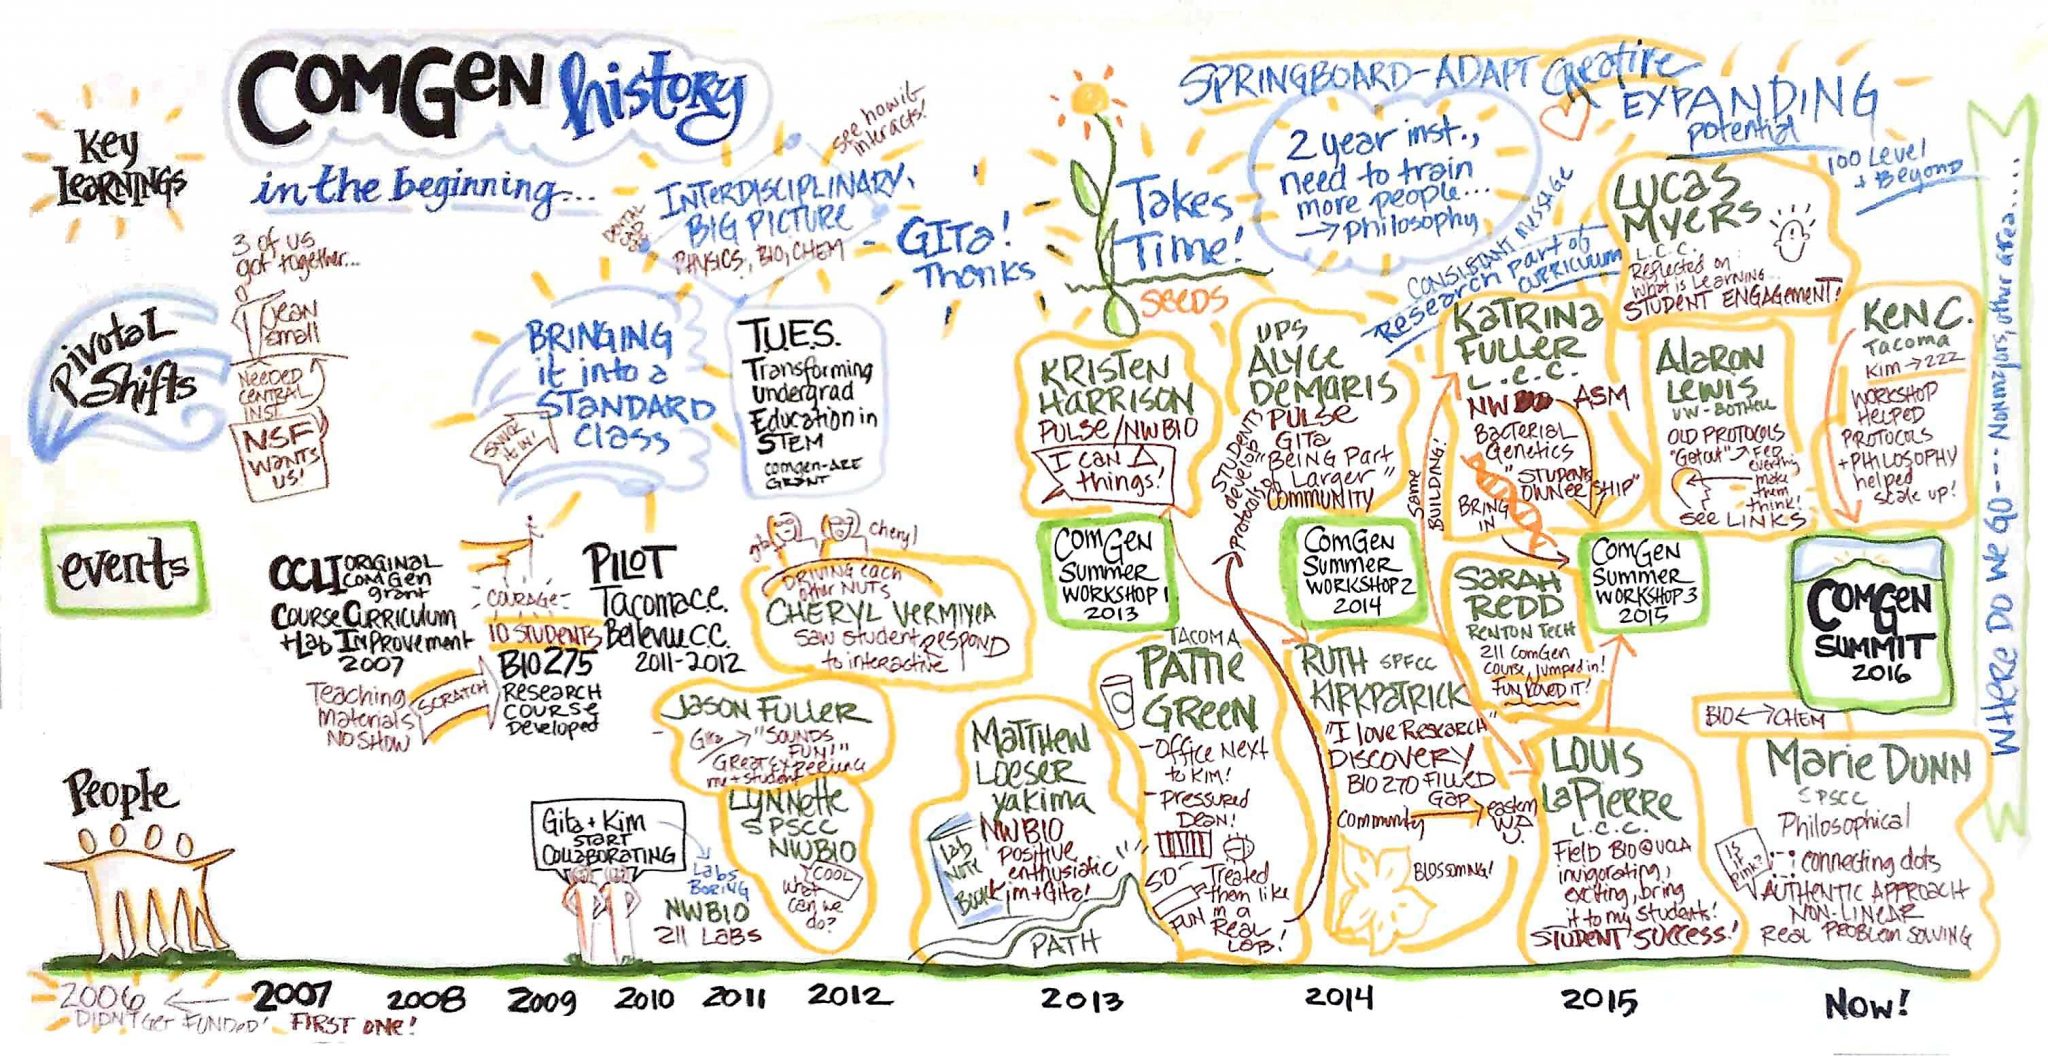 COMGEN history
in the beginning...
Key
Learnings
Pivotal
Shifts
events
People
3 of us
got together...
DEAN
small
NEEDED
CENTRAL
INST.
NSF
WANTS
US!
CCLI ORIGINAL
COMGEN
grant
Course Curriculum
+ Lab Improvement
2007
Teaching
Materials
NO SHOW
SCRATCH
COURAGE
10 STUDENTS
BIO 275
RESEARCH
COURSE
Developed
BRINGING
it into a
STANDARD
class
INTERDISCIPLINARY,
BIG PICTURE
PHYSICS, BIO, CHEM
see how it
interacts!
GITA!
Thanks
T.U.E.S.
Transforming
Undergrad
Education in
STEM
comgen-ARE
GRANT
PILOT
Tacoma C.C.
Bellevue C.C.
2011-2012
Gita
Cheryl
DRIVING each
other NUTS
CHERYL VERMILYEA
saw student RESPOND
to interactive
JASON FULLER
Gita
"SOUNDS
FUN!"
GREAT EXPERIENCE
me + student
Gita + Kim
START
COLLABORATING
Labs
BORING
NWBIO
211 LABS
LYNNette
SPSCC
NWBIO
COOL
what
can we
do?
Matthew
Loeser
Yakima
NWBIO
positive
enthusiastic
Kim + Gita!
Lab
NOTE
BOOK
PATH
Takes
Time!
SEEDS
KRISTEN
HARRISON
PULSE/NWBIO
I can Δ
things!
COMGEN
SUMMER
WORKSHOP 1
2013
TACOMA
PATTIE
GREEN
- OFFICE NEXT
to KIM!
- pressured
DEAN!
SO
FUN
Treated
them like
in a
REAL
LAB!
STUDENTS
develop
Protocols
SPRINGBOARD - ADAPT creative
EXPANDING
potential
2 year inst.,
need to train
more people...
→ Philosophy
CONSISTANT MESSAGE
Research part of
CURRICULUM
100 Level
+ Beyond
UPS
ALYCE
DEMARIS
PULSE
GITA
"BEING Part
Larger"
COMMUNITY
COMGEN
SUMMER
WORKSHOP 2
2014
RUTH SPFCC
KIRKPATRICK
"I love Research"
DISCOVERY
BIO 270 FILLED
GAP
Community
eastern
W.A.
U.
BLOSSOMING!
Same
BUILDING!
KATRINA
FULLER
L.C.C.
NW
ASM
Bacterial
Genetics
"STUDENT
OWNERSHIP"
BRING
IN
LUCAS
MYERS
L.C.C.
Reflected on
what is Learning...
STUDENT ENGAGEMENT!
ALARON
LEWIS
UW-BOTHELL
OLD PROTOCOLS
"Get out"
FED
everything
make
them
think!
see LINKS
SARAH
REDD
RENTON TECH
211 COMGEN
course, jumped in!
FUN LOVED IT!
COMGEN
SUMMER
WORKSHOP 3
2015
LOUIS
LaPierre
L.C.C.
FIELD BIO @ UCLA
invigorating,
exciting, bring
it to my students!
STUDENT SUCCESS!
KEN C.
Tacoma
Kim → 222
WORKSHOP
HELPED
PROTOCOLS
+ PHILOSOPHY
helped
scale up!
COMGEN
SUMMIT
2016
BIO ↔ CHEM
MARIE DUNN
SPSCC
Philosophical
IS
IT
PINK?
connecting dots
AUTHENTIC APPROACH
NON-LINEAR
REAL PROBLEM SOLVING
WHERE DO WE GO --- Nonmajors, other area....
2006
DIDN'T GET FUNDED!
2007
FIRST ONE!
2008
2009
2010
2011
2012
2013
2014
2015
NOW!